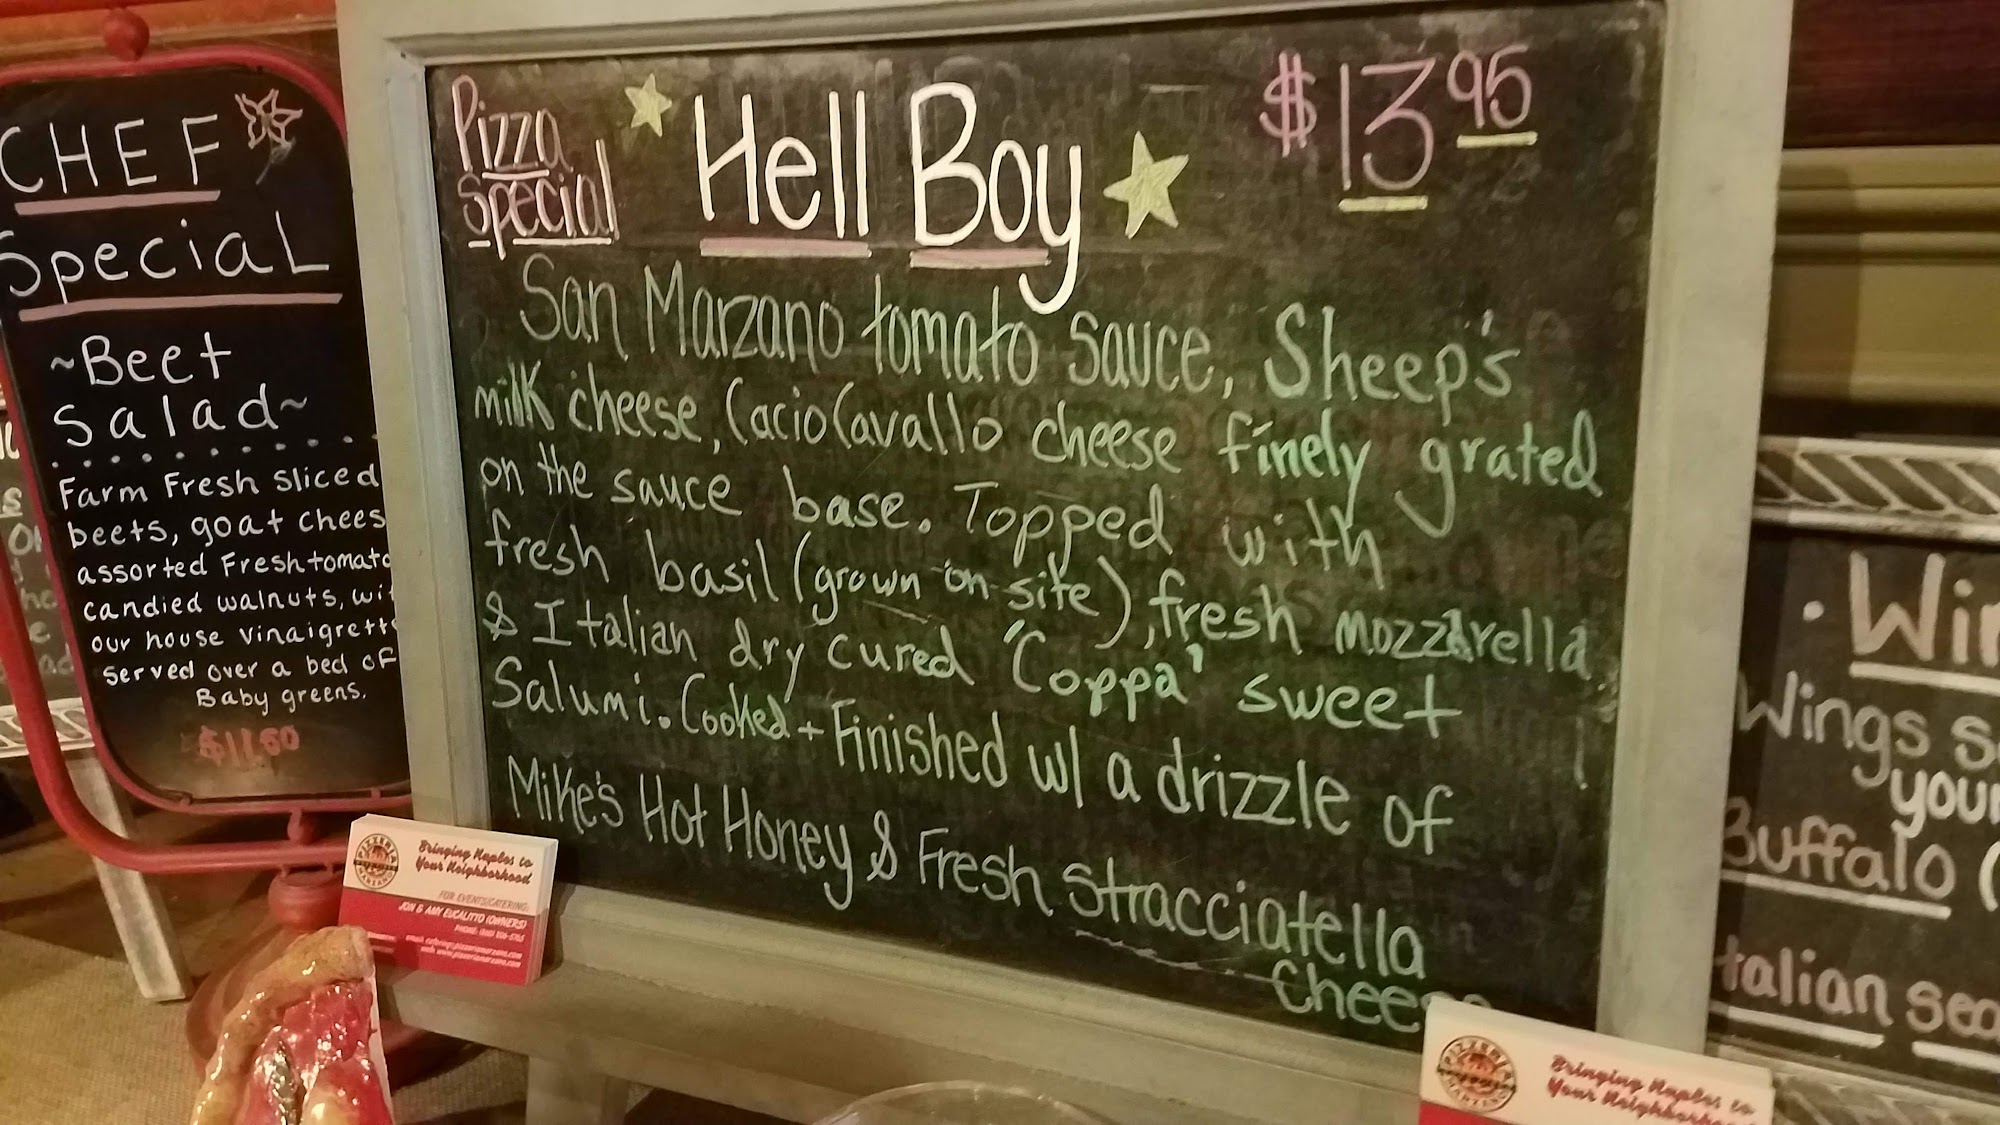 CHEF
Special
~Beet
Salad~
Farm Fresh sliced
beets, goat chees
assorted Fresh tomato
candied walnuts, wi
our house vinaigrett
served over a bed of
Baby greens.
$11.50
Pizza
Special
Hell Boy
$13 95
San Marzano tomato sauce, Sheep's
milk cheese, CacioCavallo cheese finely grated
on the sauce base. Topped with
fresh basil (grown on site), fresh mozzarella
& Italian dry cured 'Coppa' sweet
Salumi. Cooked + Finished w/ a drizzle of
Mike's Hot Honey & Fresh Stracciatella
Cheese
Bringing Naples to
Your Neighborhood
FOR EVENTS/CATERING:
JON & AMY EUCALITTO (OWNERS)
PIZZERIA
MARZANO
Bringing Naples to
Your Neighborhood
PIZZERIA
MARZANO
Win
Wings s
your
Buffalo (
talian sea